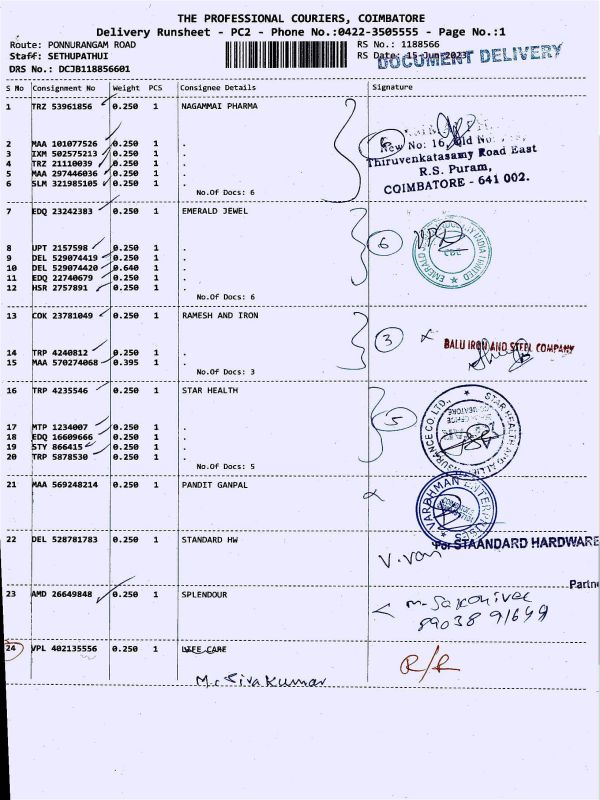 THE PROFESSIONAL COURIERS, COIMBATORE
Delivery Runsheet - PC2 - Phone No.:0422-3505555 - Page No.:1
Route: PONNURANGAM ROAD
RS No.: 1188566
Staff: SETHUPATHUI
RS Date: 15-Jun-2023
DOCUMENT DELIVERY
DRS No.: DCJB118856601
S No Consignment No Weight PCS Consignee Details Signature
1 TRZ 53961856 0.250 1 NAGAMMAI PHARMA
2 MAA 101077526 0.250 1 .
3 IXM 502575213 0.250 1 .
4 TRZ 21110039 0.250 1 .
5 MAA 297446036 0.250 1 .
6 SLM 321985105 0.250 1 .
No.Of Docs: 6
6
New No: 16, Old No:
Thiruvenkatasamy Road East
R.S. Puram,
COIMBATORE - 641 002.
7 EDQ 23242383 0.250 1 EMERALD JEWEL
8 UPT 2157598 0.250 1 .
9 DEL 529074419 0.250 1 .
10 DEL 529074420 0.640 1 .
11 EDQ 22740679 0.250 1 .
12 HSR 2757891 0.250 1 .
No.Of Docs: 6
6
EMERALD JEWEL INDUSTRY INDIA LIMITED
13 COK 23781049 0.250 1 RAMESH AND IRON
14 TRP 4240812 0.250 1 .
15 MAA 570274068 0.395 1 .
No.Of Docs: 3
3
BALU IRON AND STEEL COMPANY
16 TRP 4235546 0.250 1 STAR HEALTH
17 MTP 1234007 0.250 1 .
18 EDQ 16609666 0.250 1 .
19 STY 866415 0.250 1 .
20 TRP 5878530 0.250 1 .
No.Of Docs: 5
5
STAR HEALTH AND ALLIED INSURANCE CO. LTD.,
21 MAA 569248214 0.250 1 PANDIT GANPAL
VARDHMAN ENTERPRISES
22 DEL 528781783 0.250 1 STANDARD HW
For STAANDARD HARDWARE
V. Vani
Partne
23 AMD 26649848 0.250 1 SPLENDOUR
89038 91649
24 VPL 402135556 0.250 1 LIFE CARE
R/R
M. Sivakumar